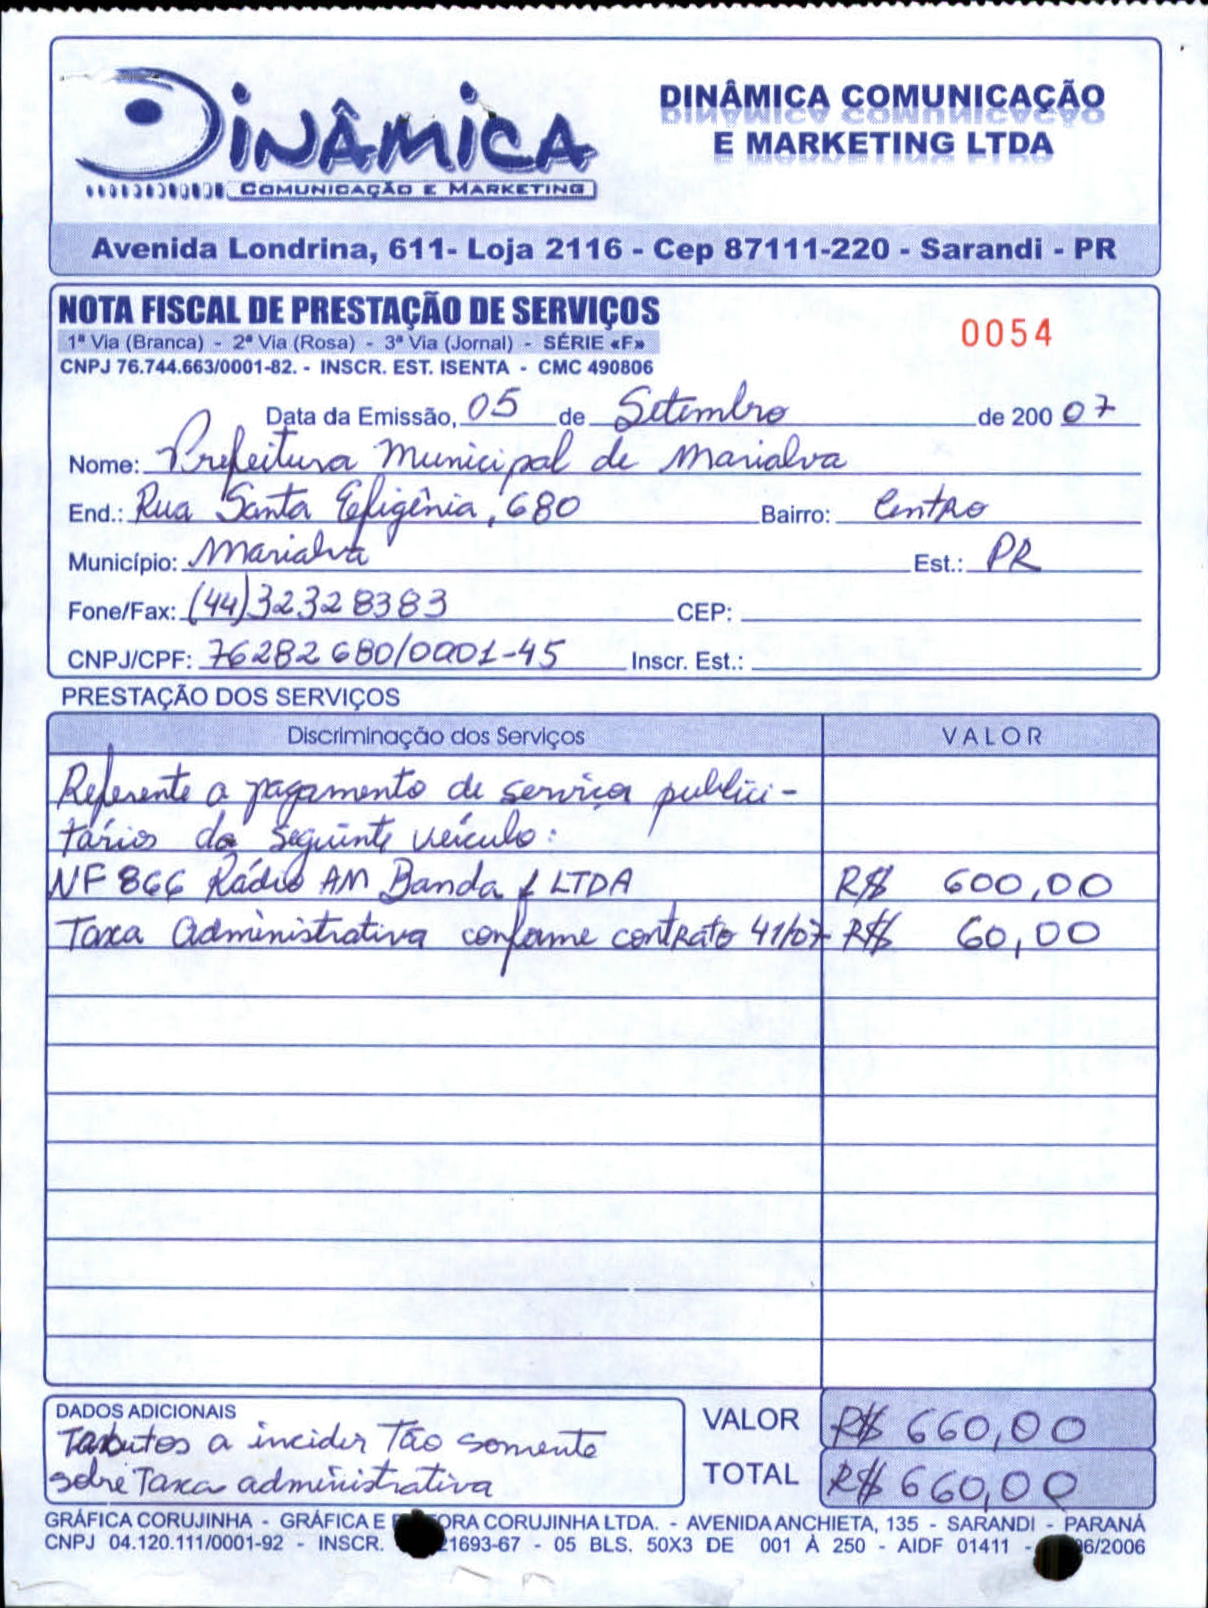 DINÂMICA
COMUNICAÇÃO E MARKETING
DINÂMICA COMUNICAÇÃO
E MARKETING LTDA
Avenida Londrina, 611- Loja 2116 - Cep 87111-220 - Sarandi - PR
NOTA FISCAL DE PRESTAÇÃO DE SERVIÇOS
1ª Via (Branca) - 2ª Via (Rosa) - 3ª Via (Jornal) - SÉRIE «F»
CNPJ 76.744.663/0001-82. - INSCR. EST. ISENTA - CMC 490806
0054
Data da Emissão, 05 de Setembro de 200 07
Nome: Prefeitura Municipal de Marialva
End.: Rua Santa Efigênia, 680 Bairro: Centro
Município: Marialva Est.: PR
Fone/Fax: (44)32328383 CEP:
CNPJ/CPF: 76282680/0001-45 Inscr. Est.:
PRESTAÇÃO DOS SERVIÇOS
Discriminação dos Serviços VALOR
Referente a pagamento de serviços publici-
tários do seguinte veículo:
NF 866 Rádio AM Banda 1 LTDA R$ 600,00
Taxa administrativa conforme contrato 41/07 R$ 60,00
DADOS ADICIONAIS
Tributos a incidir Tão somente
sobre Taxa administrativa
VALOR R$ 660,00
TOTAL R$ 660,00
GRÁFICA CORUJINHA - GRÁFICA E ORA CORUJINHA LTDA. - AVENIDA ANCHIETA, 135 - SARANDI - PARANÁ
CNPJ 04.120.111/0001-92 - INSCR. 21693-67 - 05 BLS. 50X3 DE 001 À 250 - AIDF 01411 - 6/2006